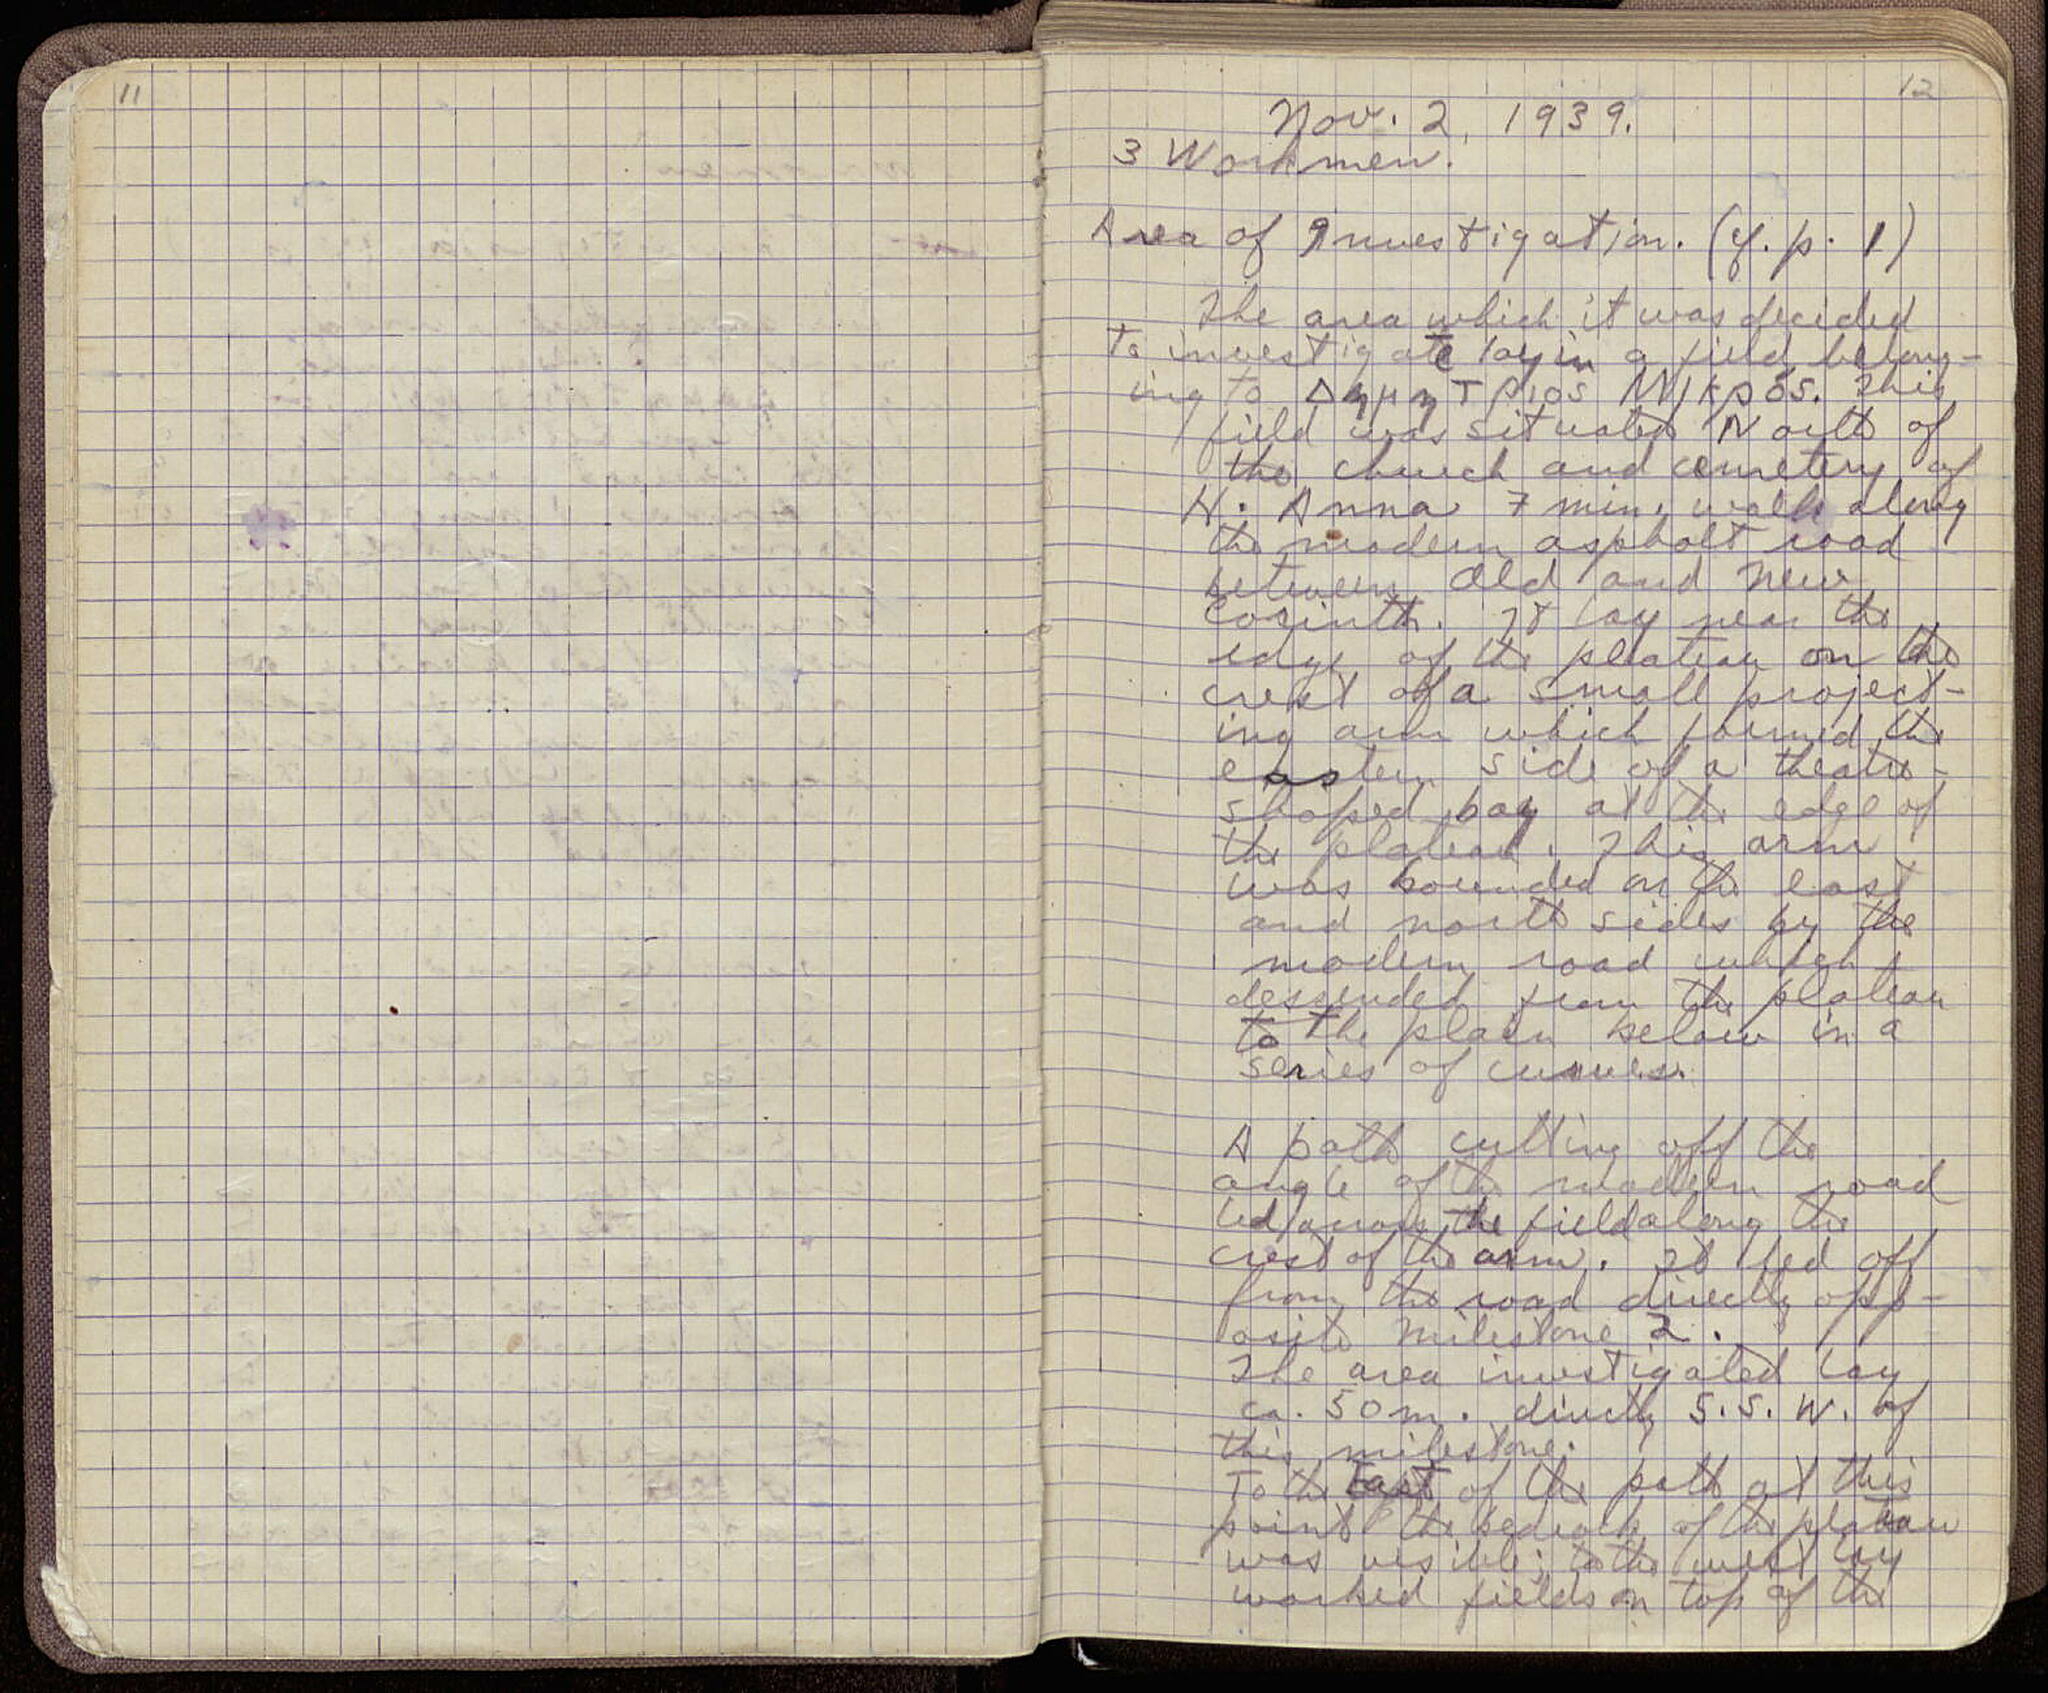 11
12
Nov. 2, 1939.
3 Workmen.
Area of Investigation. (cf. p. 1)
The area which it was decided
to investigate lay in a field belong-
ing to Δημητριος Μικρός. This
field was situated North of
the church and cemetery of
H. Anna 7 min. walk along
the modern asphalt road
between Old and New
Corinth. It lay near the
edge of the plateau on the
crest of a small project-
ing arm which formed the
eastern side of a theatre-
shaped bay at the edge of
the plateau. This arm
was bounded on the east
and north sides by the
modern road which
descended from the plateau
to the plain below in a
series of curves.
A path cutting off the
angle of the modern road
led across the field along the
crest of the arm. It led off
from the road directly opp-
osite Milestone 2.
The area investigated lay
ca. 50 m. directly S.S.W. of
this milestone.
To the East of the path at this
point the bedrock of the plateau
was visible; to the west lay
worked fields on top of the